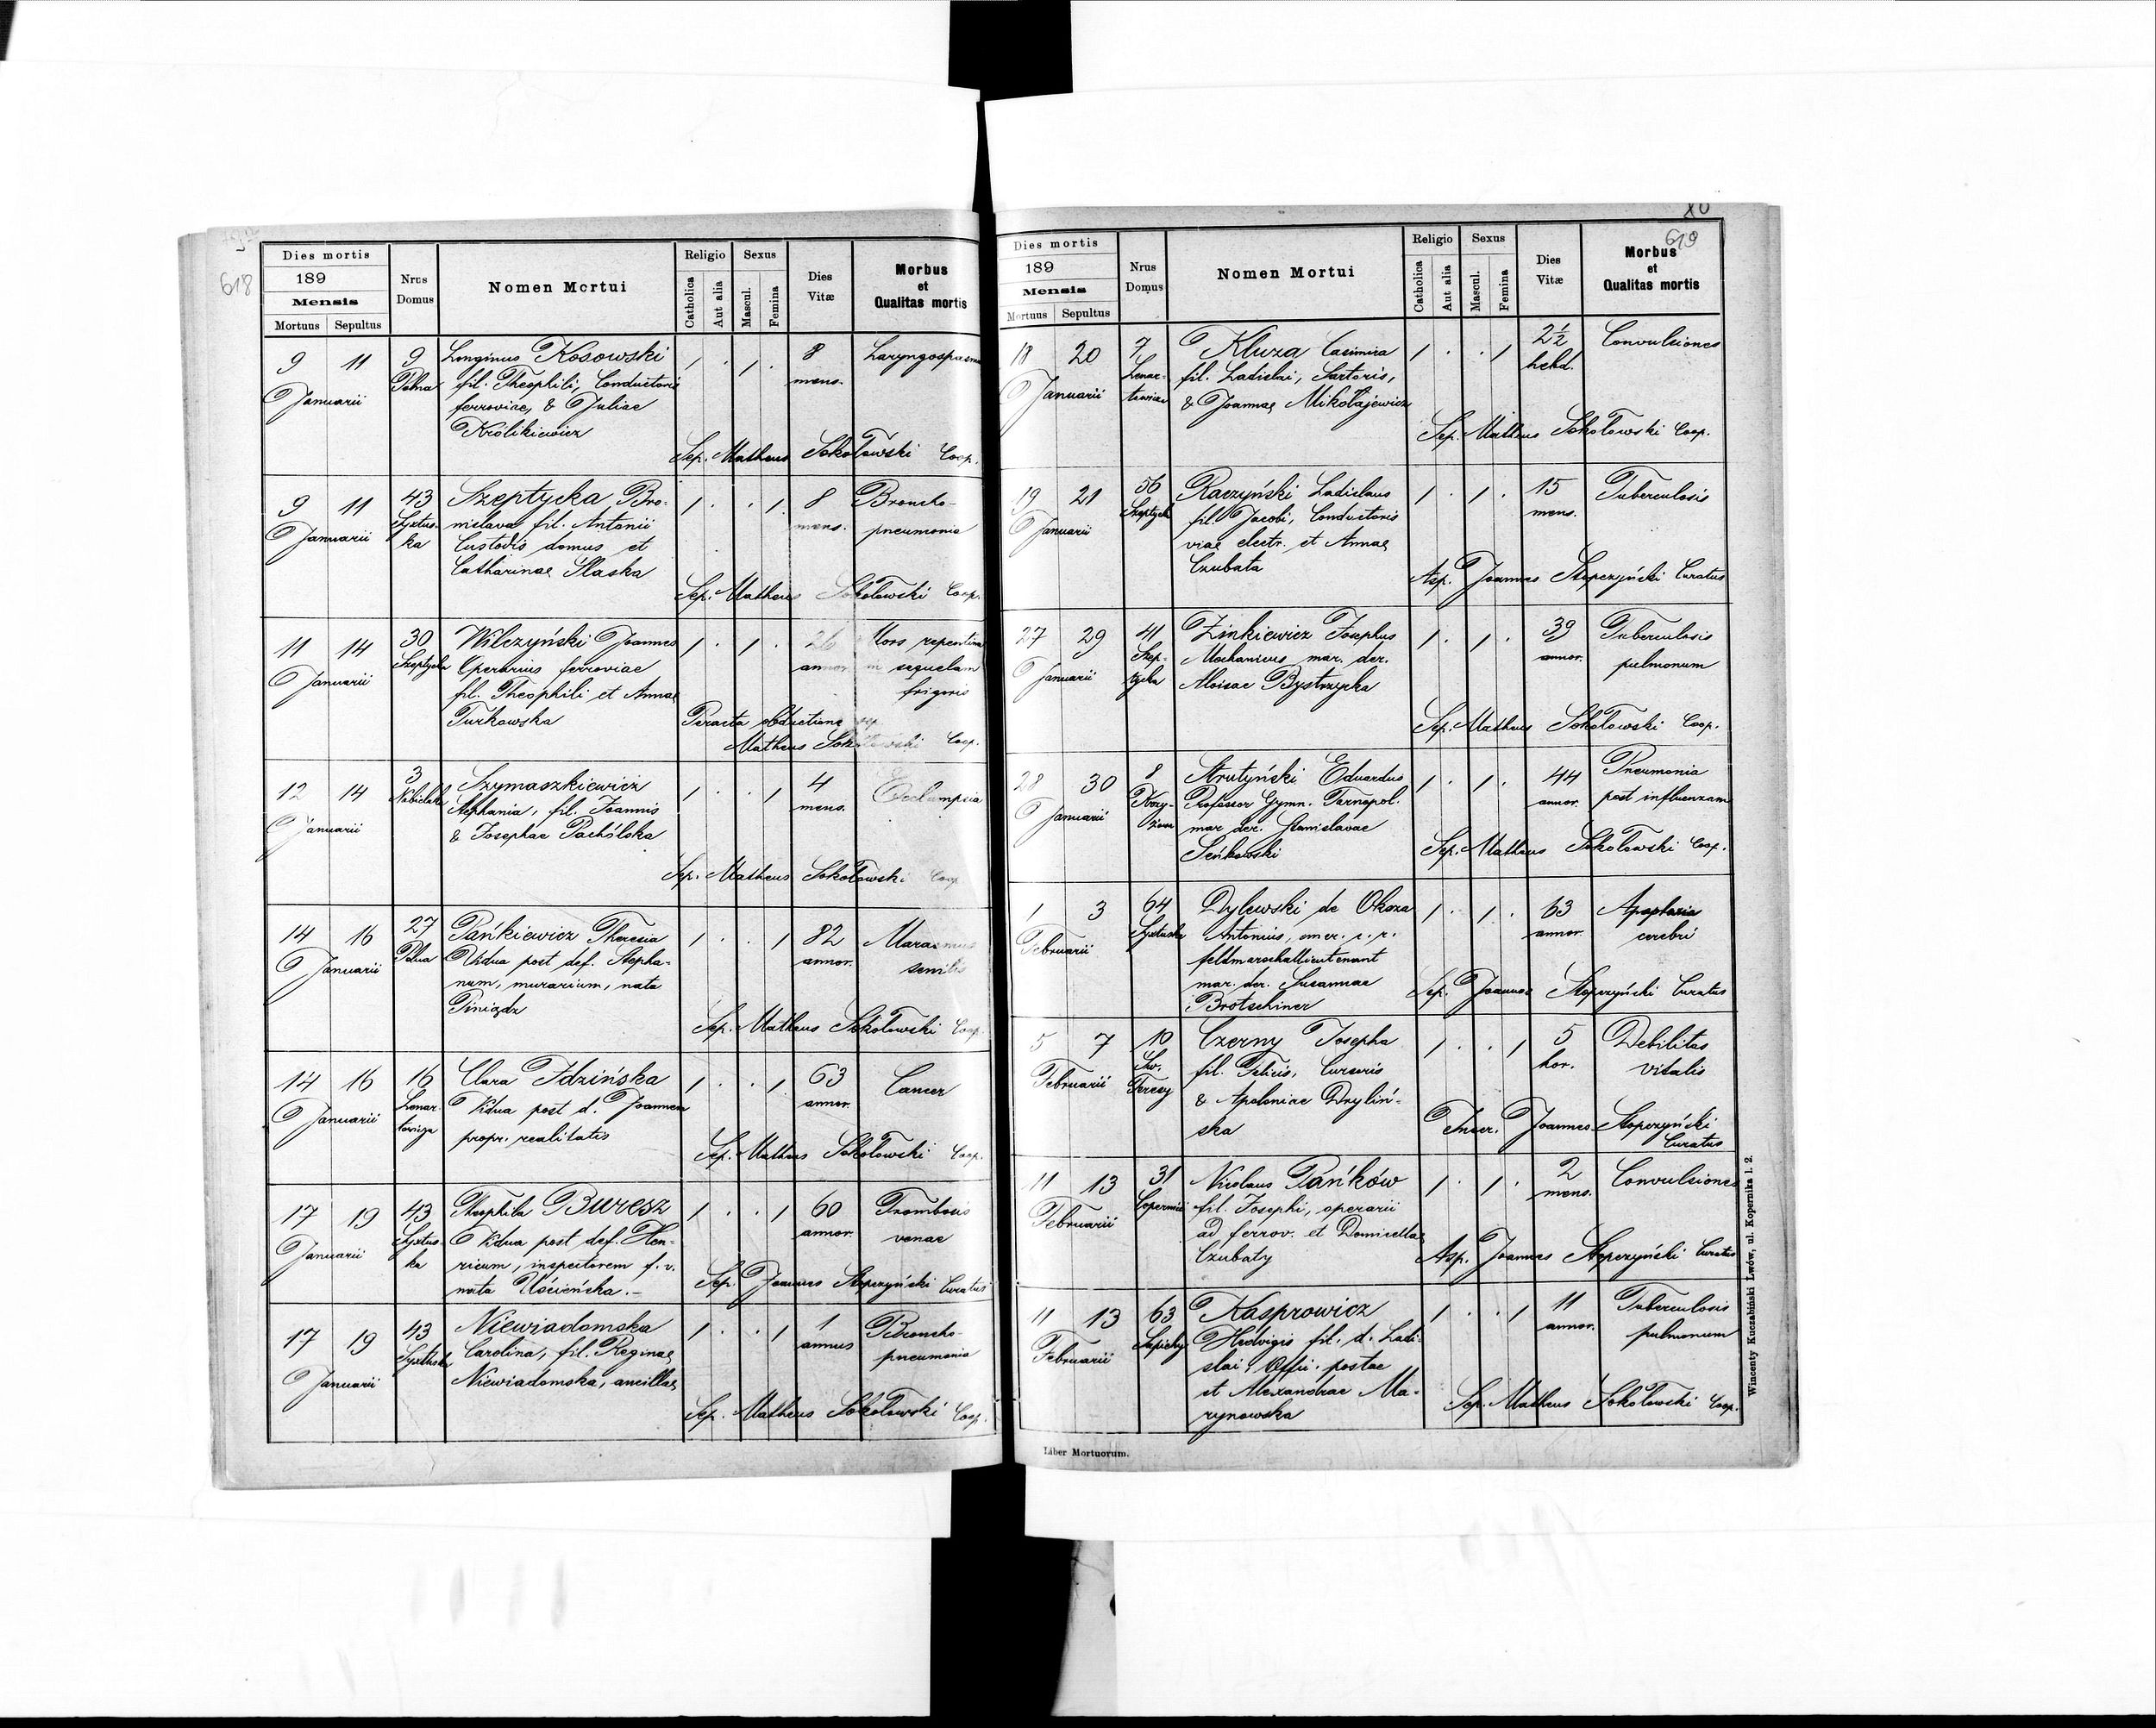 618
Dies mortis
189
Mensis
Mortuus Sepultus
Nrus Domus
Nomen Mortui
Religio
Catholica
Aut alia
Sexus
Mascul.
Femina
Dies Vitæ
Morbus et Qualitas mortis
9 11 9 Longinus Kosowski 1 . 1 . 8 Laryngospasmus
Januarii Polna fil. Theophili, Conductoris mens.
ferroviae, & Juliae
Królikiewicz
Sep. Matheus Sokołowski Coop.
9 11 43 Szeptycka Bro- 1 . . 1 8 Broncho-
Januarii Syxtus- nislava fil. Antonii mens. pneumonia
ka Custodis domus et
Catharinae Slaska
Sep. Matheus Sokołowski Coop.
11 14 30 Wilczyński Joannes 1 . 1 . 26 Mors repentina
Januarii Szeptycka Operarius ferroviae annor. in sequelam
fil. Theophili et Annae frigoris
Turkowska Peracta obductione sep.
Matheus Sokołowski Coop.
12 14 3 Szymaszkiewicz 1 . . 1 4 Eclampsia
Januarii Stephania, fil. Joannis mens.
& Josephae Pachólska
Sep. Matheus Sokołowski Coop.
14 16 27 Pańkiewicz Theresia 1 . . 1 82 Marasmus
Januarii Polna Vidua post def. Stepha- annor. senilis
num, murarium, nata
Piniądz
Sep. Matheus Sokołowski Coop.
14 16 16 Clara Idzińska 1 . . 1 63 Cancer
Januarii Lenar- Vidua post d. Joannem annor.
towicza propr. realitatis
Sep. Matheus Sokołowski Coop.
17 19 43 Theophila Buresz 1 . . 1 60 Trombosis
Januarii Syxtus- Vidua post def. Hen- annor. venae
ka ricum, inspectorem f. v.
nata Uścieńska.-
Sep. Joannes Stopczyński Curatus
17 19 43 Niewiadomska 1 . . 1 1 Broncho-
Januarii Syxtuska Carolina, fil. Reginae annus pneumonia
Niewiadomska, ancillae
Sep. Matheus Sokołowski Coop.
80
619
Dies mortis
189
Mensis
Mortuus Sepultus
Nrus Domus
Nomen Mortui
Religio
Catholica
Aut alia
Sexus
Mascul.
Femina
Dies Vitæ
Morbus et Qualitas mortis
18 20 7 Kluza Casimira 1 . . 1 2½ Convulsiones
Januarii Lenar- fil. Ladislai, Sartoris, hebd.
& Joannae Mikołajewicz
Sep. Matheus Sokołowski Coop.
19 21 56 Raczyński Ladislaus 1 . 1 . 15 Tuberculosis
Januarii Szeptycka fil. Jacobi, Conductoris mens.
viae electr. et Annae
Czubata
Asp. Joannes Stopczyński Curatus
27 29 41 Zinkiewicz Josephus 1 . 1 . 39 Tuberculosis
Januarii Szep- Mechanicus mar. der. annor. pulmonum
tycka Aloisae Bystrzycka
Sep. Matheus Sokołowski Coop.
28 30 8 Strutyński Eduardus 1 . 1 . 44 Pneumonia
Januarii Professor Gymn. Tarnopol. annor. post influenzam
mar. der. Stanislavae
Seńkowski
Sep. Matheus Sokołowski Coop.
1 3 64 Dylewski de Oksza 1 . 1 . 63 Apoplexia
Februarii Syxtuska Antonius, emer. c. r. annor. cerebri
feldmarschallieutenant
mar. der. Susannae
Brotschiner
Sep. Joannes Stopczyński Curatus
5 7 10 Czerny Josepha 1 . . 1 5 Debilitas
Februarii Św. fil. Felicis, Cursoris hor. vitalis
Teresy & Apoloniae Dryliń-
ska
Inser. Joannes Stopczyński
Curatus
11 13 31 Nicolaus Pańków 1 . 1 . 2 Convulsiones
Februarii Copernici fil. Josephi, operarii mens.
ad ferrov. et Domicellae
Czubaty
Asp. Joannes Stopczyński Curatus
11 13 63 Kasprowicz 1 . . 1 11 Tuberculosis
Februarii Sapiehy Hedvigis fil. d. Ladi- annor. pulmonum
slai, Offic. postae
et Alexandrae Ma-
rynowska
Sep. Matheus Sokołowski Coop.
Liber Mortuorum.
Wincenty Kuczabiński Lwów, ul. Kopernika l. 2.